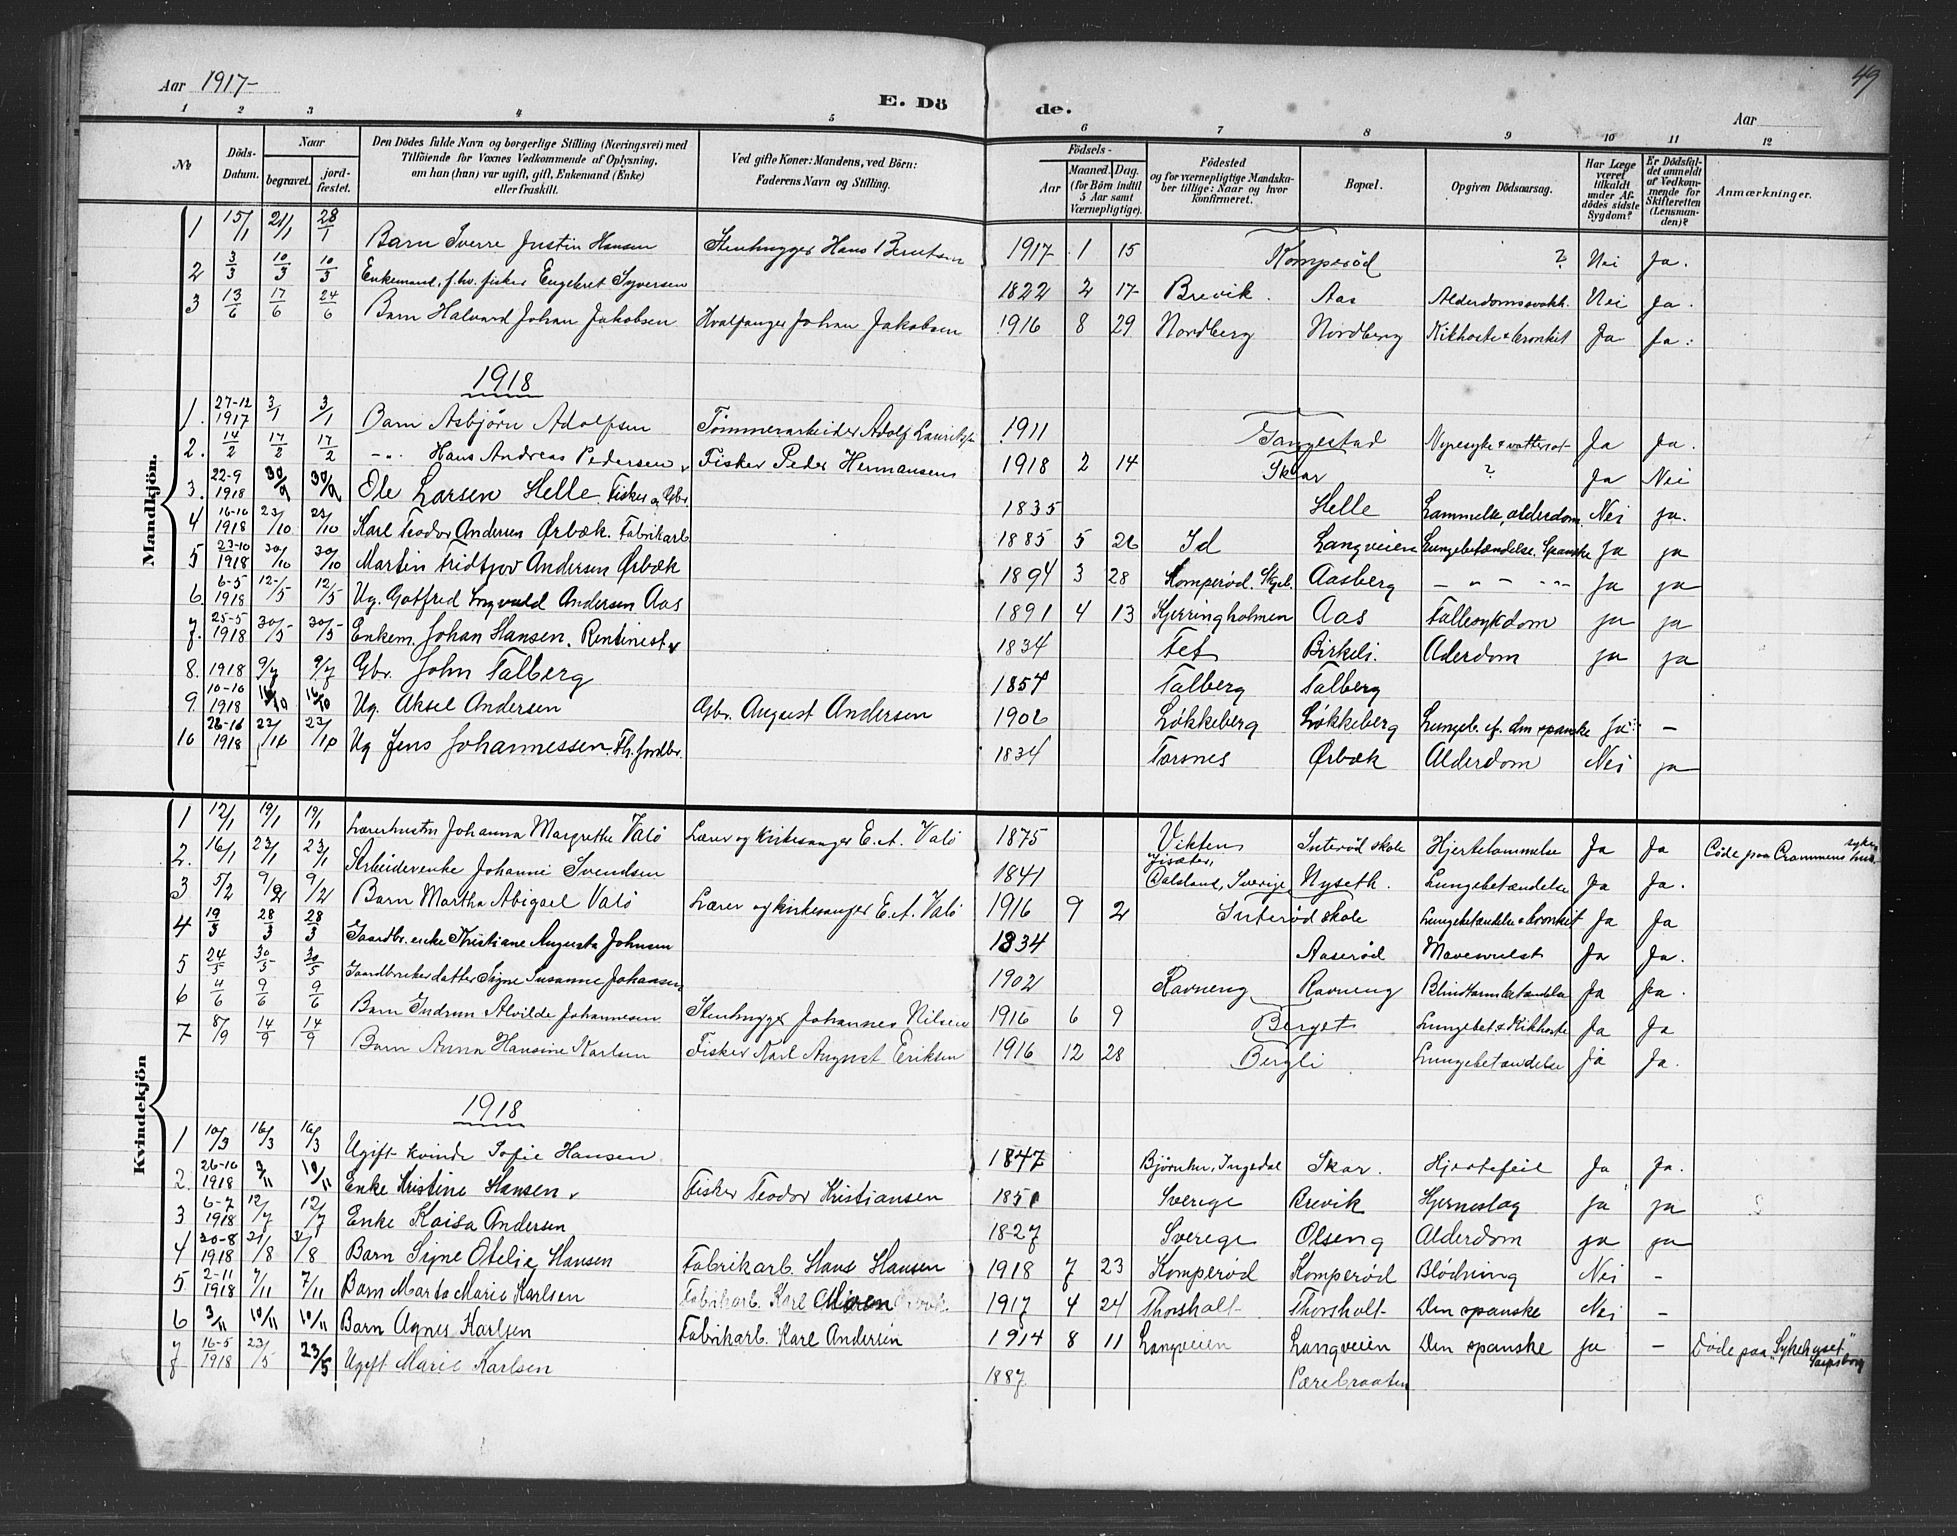 Aar 1917-
E. Dö de.
Aar
49
1 2 3 4 5 6 7 8 9 10 11 12
No
Döds-Datum.
Naar
begravet.
jordfæstet.
Den Dödes fulde Navn og borgerlige Stilling (Næringsvei) med Tilföiende for Voxnes Vedkommende af Oplysning, om han (hun) var ugift, gift, Enkemand (Enke) eller fraskilt.
Ved gifte Koner: Mandens, ved Börn: Faderens Navn og Stilling.
Födsels-
Aar
Maaned. Dag.
(for Börn indtil 5 Aar samt Værnepligtige).
Födested og for værnepligtige Mandskaber tillige: Naar og hvor konfirmeret.
Bopæl.
Opgiven Dödsaarsag.
Har Læge været tilkaldt under Afdödes sidste Sygdom?
Er Dödsfaldet anmeldt af Vedkommende for Skifteretten (Lensmanden)?
Anmærkninger.
Mandkjön.
1 15/1 21/1 28/1 Barn Sverre Justin Hansen Stenhugger Hans Berntsen 1917 1 15 Komperød ? Nei Ja.
2 3/3 10/3 10/3 Enkemand, f.hv. fisker Engebret Syversen 1822 2 17 Brevik. Aas Alderdomssvakh. Nei Ja.
3 13/6 17/6 24/6 Barn Halvard Johan Jakobsen Hvalfanger Johan Jakobsen 1916 8 29 Nordberg Nordberg Kikhoste & bronkit Ja Ja.
1918
1. 27-12 1917 3/1 3/1 Barn Asbjørn Adolfsen Tømmerarbeider Adolf Lauritsen 1911 Tangestad Nyresyke & vattersot Ja Ja.
2. 14/2 17/2 17/2 -"- Hans Andreas Pedersen Fisker Peder Hermansens 1918 2 14 Skar ? Ja Nei
3. 22-9 1918 30/9 30/9 Ole Larsen Helle. Fisker og Gbr. 1835 Helle Lammelse, alderdom Nei ja.
4 16-10 1918 23/10 23/10 Karl Teodor Andersen Ørbæk. Fabrikarb. 1885 5 26 Id Langveien Lungebetændelse. Spanske Ja ja
5 23-10 1918 30/10 30/10 Martin Fridtjov Andersen Ørbæk 1894 3 28 Komperød. Skjeb. Aasberg - " - " - Ja ja
6. 6-5 1918 12/5 12/5 Ug. Gotfred Ingvald Andersen Aas 1891 4 13 Kjerringholmen Aas Fallesykdom ja ja
7. 25-5 1918 30/5 30/5 Enkem. Johan Hansen. Rentinest 1834 Fet Birkeli. Alderdom ja ja
8. 1918 9/7 9/7 Gbr. John Talberg 1854 Talberg Talberg
9 10-10 1918 16/10 16/10 Ug. Aksel Andersen Gbr. August Andersen 1902 Løkkeberg Løkkeberg Lungeb. ef. den spanske Ja -
10 26-16 1918 Ug Jens Johannessen Fh. Jordbr. 1834 Torsnes Ørbæk Alderdom Nei ja
Kvindekjön
1 12/1 19/1 19/1 Lærerhustru Johanna Margrethe Valö Lærer og kirkesanger E. A. Valö 1875 Vikten Interød skole Hjertelammelse Ja Ja Døde paa Drammens sykehus
2. 16/1 23/1 23/1 Arbeiderenke Johanne Svendsen 1841 Dalsland, Sverige Nyseth. Lungebetændelse Ja Ja.
3 5/2 9/2 9/2 Barn Martha Abigael Valö Lærer og kirkesanger E. A. Valö 1916 9 2 Interød skole Lungebetændelse & bronkit Ja Ja
4 19/3 28/3 28/3 Gaardbr. enke Kristiane Augusta Johnsen 1834 Aaserød Mavesvulst Ja Ja.
5 24/5 30/5 30/5 Gaardbruker datter Signe Susanne Johansen 1902 Ravneng Ravneng Blindtarmbetændelse Ja Ja.
6 4/6 9/6 9/6 Barn Gudrun Alvilde Johannesen Stenhugger Johannes Nilsen 1916 6 9 Berget Lungebet & Kikhoste Ja Ja
7 8/9 14/9 14/9 Barn Anna Hansine Karlsen Fisker Karl August Eriksen 1916 12 28 Bergli Lungebetændelse Ja Ja.
1918
1 10/3 16/3 16/3 Ugift kvinde Sofie Hansen 1847 Bjørnhu, Ingedal Skar. Hjertefeil Ja Ja.
2. 26-10 1918 10/11 Enke Kristine Hansen Fisker Teodor Kristiansen 1851 Sverige Brevik Hjerneslag ja ja
3 6-7 1918 12/7 12/7 Enke Kaisa Andersen 1827 Sverige Olseng Alderdom ja ja
4 20-8 1918 21/8 Barn Signe Otelie Hansen Fabrikarb. Hans Hansen 1918 7 23 Komperød Komperød Blödning Nei -
5. 2-11 1918 7/11 7/11 Barn Marta Marie Karlsen Fabrikarb. Karl 1917 4 24 Thorsholt Thorsholt Den spanske Nei -
6 3/11 10/11 10/11 Barn Agnes Karlsen Fabrikarb. Karl Andersen 1914 8 11 Langveien Langveien Den spanske ja - Døde paa "Sykehuset" Sarpsborg
7 16-5 1918 23/5 23/5 Ugift Marie Karlsen 1887 Pærebraaten